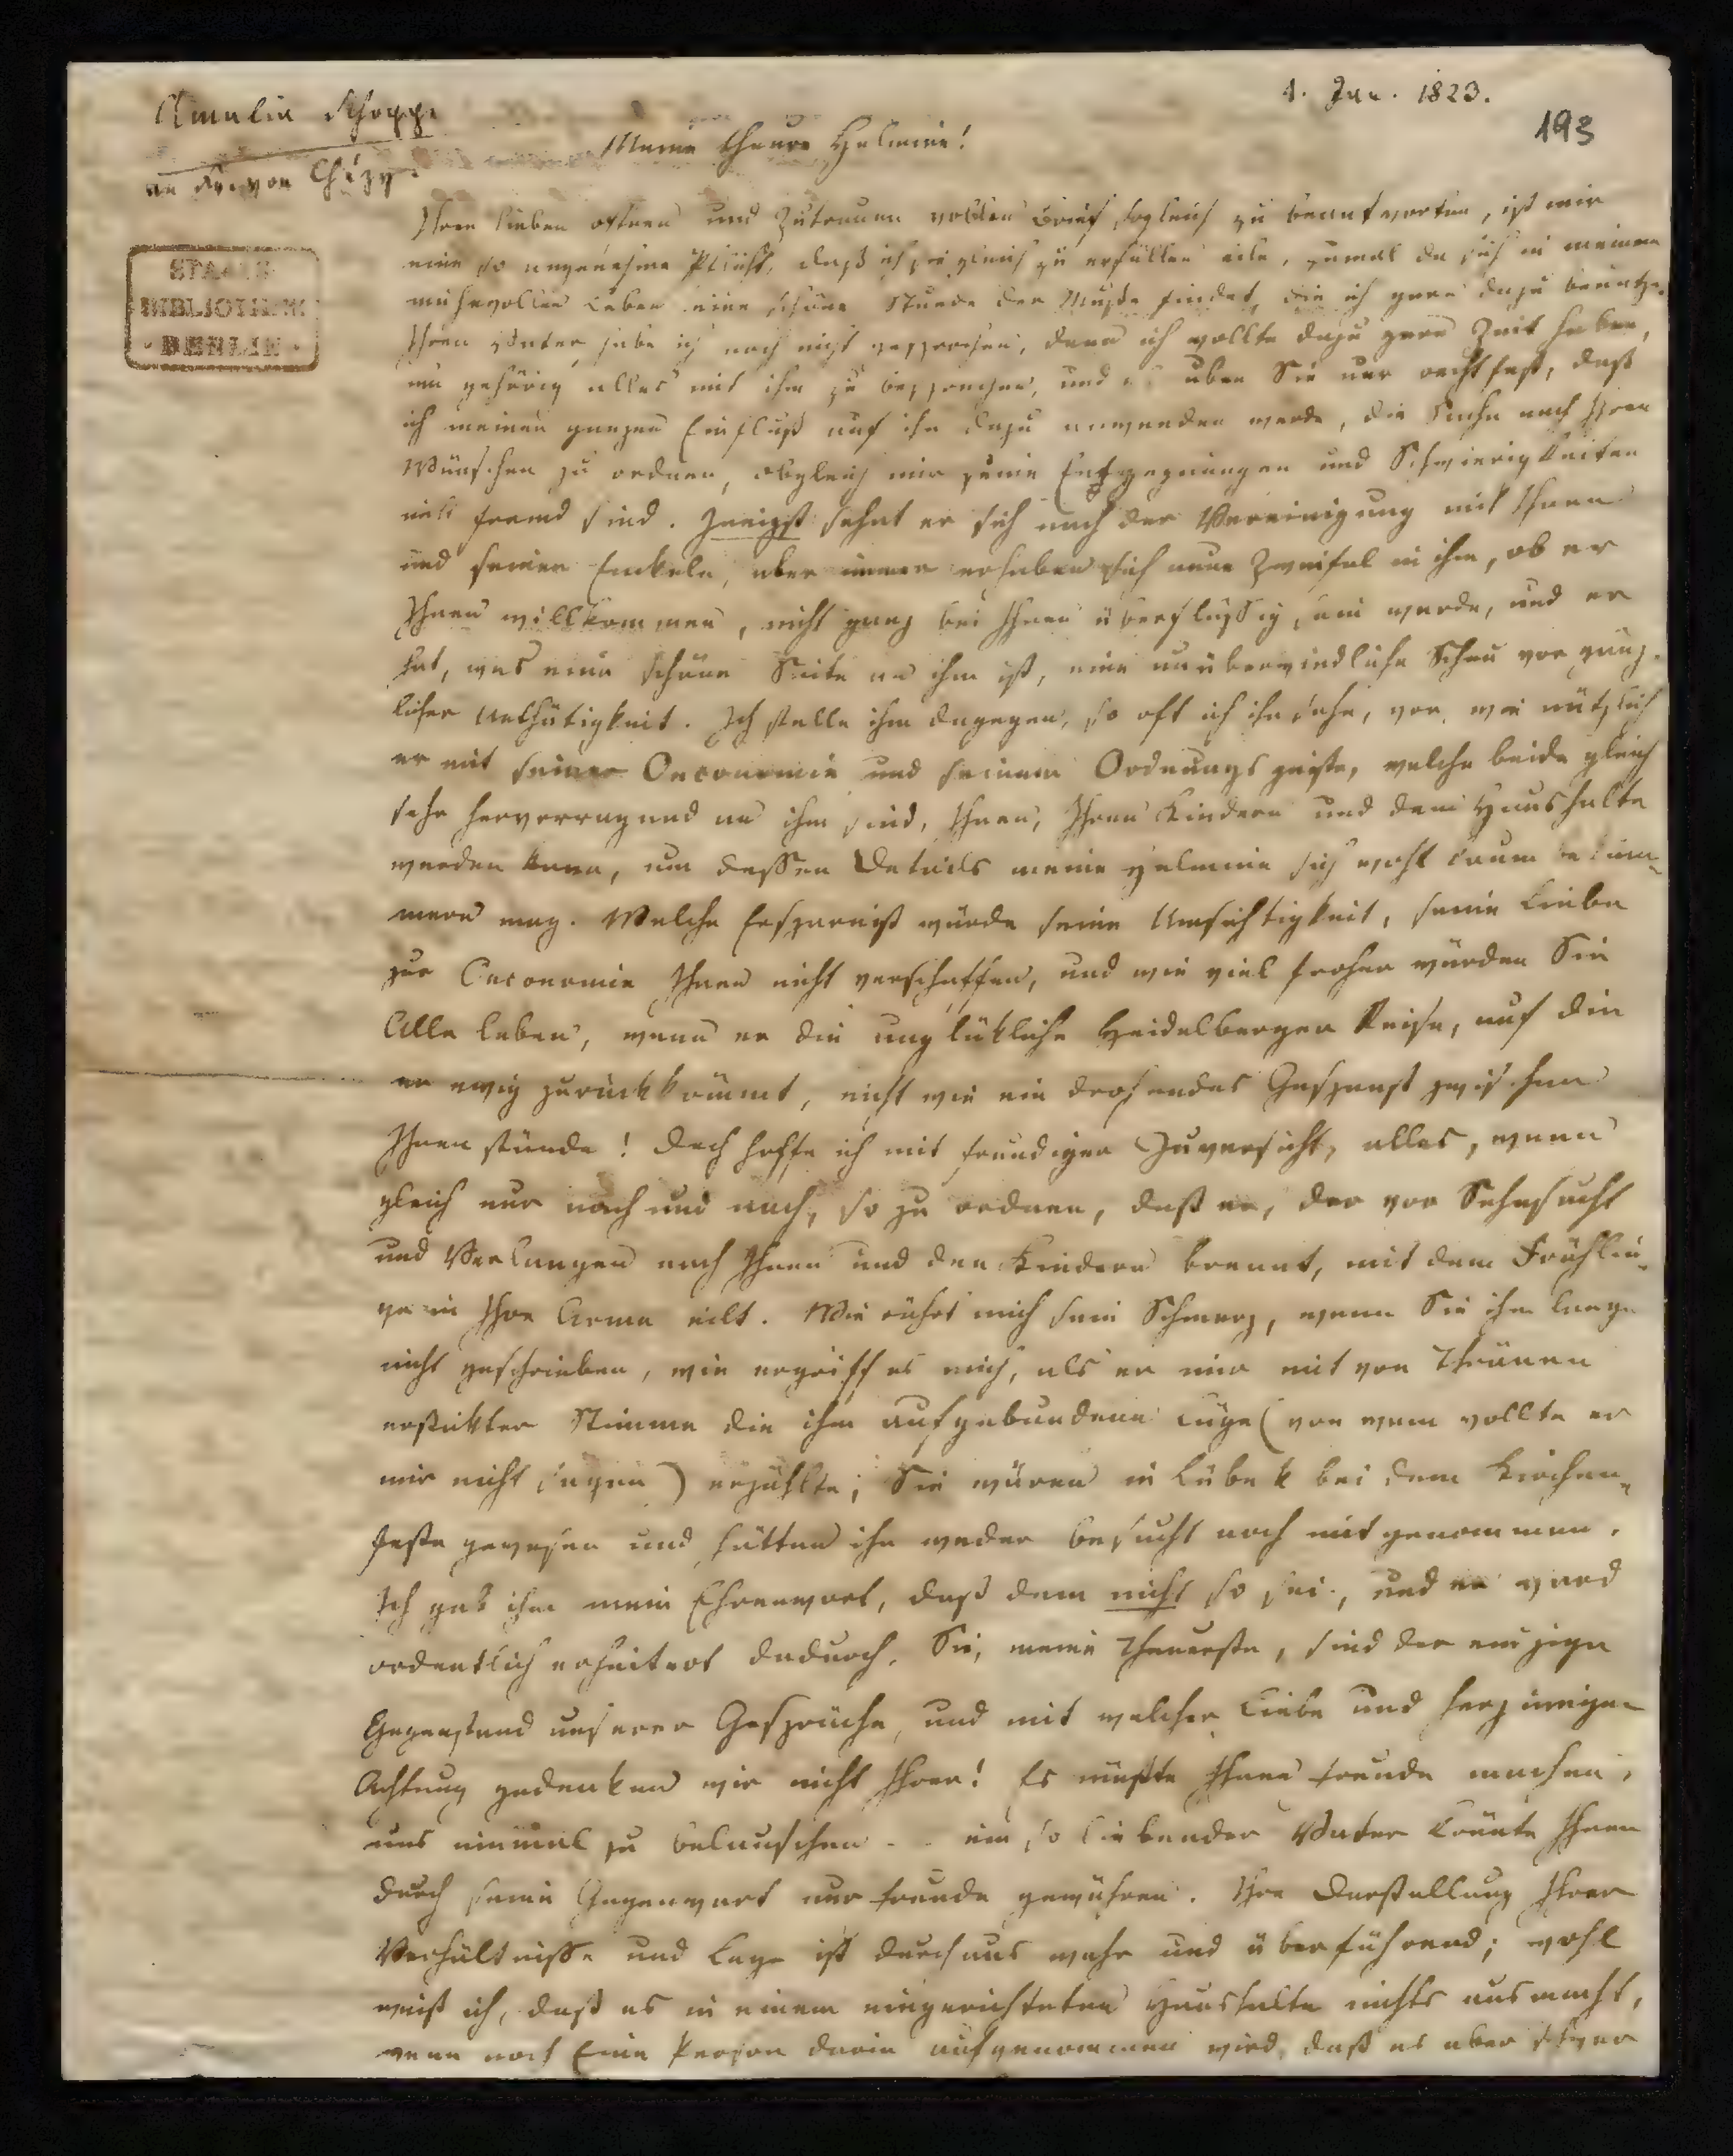 Amalia Schoppe
an Fr. von Chézy.
1. Jan. 1823.
193
Meine theure Helmine!
STAATS
BIBLIOTHEK
BERLIN
Ihren lieben offnen und Zutrauen vollen Brief sogleich zu beantworten, ist mir
eine so angenehme Pflicht, daß ich sie gleich zu erfüllen eile, zumal da sich in meinem
mühevollen Leben eine schöne Stunde der Muße findet, die ich gern dazu benutze.
Ihren Vater habe ich noch nicht gesprochen, denn ich wollte dazu gern Zeit haben,
um gehörig alles mit ihm zu besprechen, und uben Sie nur recht fest, daß
ich meinen ganzen Einfluß auf ihn dazu anwenden werde, die Sache nach Ihren
Wünschen zu ordnen, obgleich mir seine Entgegnungen und Schwierigkeiten
nicht fremd sind. Innigst sehnt er sich nach der Vereinigung mit Ihnen
und seinen Enkeln, aber immer erheben sich neue Zweifel in ihm, ob er
Ihnen willkommen, nicht ganz bei Ihnen überflüßig sein werde, und er
hat, was eine schöne Seite an ihm ist, eine unüberwindliche Scheu vor gänz-
licher Unthätigkeit. Ich stelle ihm dagegen, so oft ich ihn sehe, vor, wie nützlich
er mit seiner Oeconomie und seinem Ordnungsgeiste, welche beide gleich
sehr hervorragend an ihm sind, Ihnen, Ihren Kindern und dem Haushalte
werden kann, um dessen Details meine Helmine sich wohl kaum beküm-
mern mag. Welche Ersparniß würde seine Umsichtigkeit, seine Liebe
zur Oeconomie Ihnen nicht verschaffen, und wie viel froher würden Sie
Alle leben, wenn er die unglükliche Heidelberger Reise, auf die
er ewig zurückkömmt, nicht wie ein drohendes Gespenst zwischen
Ihnen stünde! Doch hoffe ich mit freudiger Zuversicht, alles, wenn
gleich nur nach und nach, so zu ordnen, daß er, der vor Sehnsucht
und Verlangen nach Ihnen und den Kindern brennt, mit dem Frühlin-
ge in Ihre Arme eilt. Wie rührt mich sein Schmerz, wenn Sie ihm lange
nicht geschrieben, wie ergriff es mich, als er mir mit von Thränen
erstikter Stimme die ihm aufgebundene Lüge (von wem wollte er
mir nicht sagen) erzählte; Sie wären in Lübek bei dem Kirchen-
feste gewesen und hätten ihn weder besucht noch mitgenommen.
Ich gab ihm mein Ehrenwort, daß dem nicht so sei, und er ward
ordentlich erheitert dadurch. Sie, meine Theuerste, sind der einzige
Gegenstand unserer Gespräche, und mit welcher Liebe und herzinniger
Achtung gedenken wir nicht Ihrer! Es müßte Ihnen Freude machen,
uns einmal zu belauschen - - ein so liebender Vater könnte Ihnen
durch seine Gegenwart nur Freude gewähren. Ihre Darstellung Ihrer
Verhältnisse und Lage ist durchaus wahr und überführend; wohl
weiß ich, daß es in einem eingerichteten Haushalte nichts ausmacht,
wenn noch Eine Person darin aufgenommen wird, daß es aber schwer